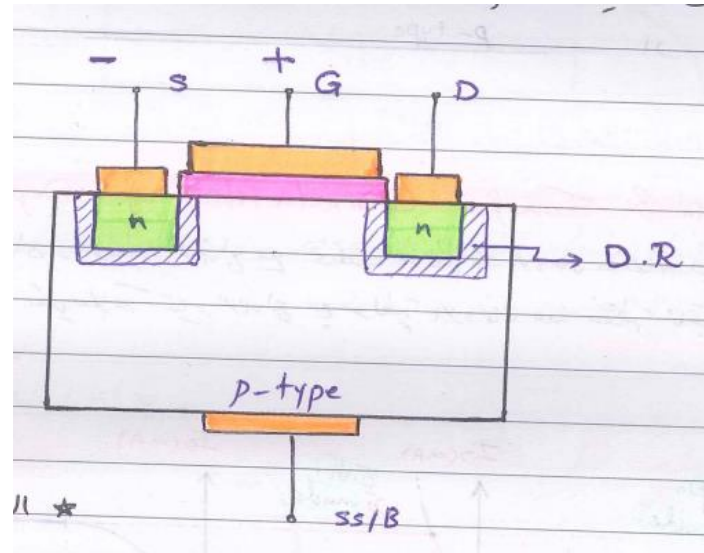 - S + G D
n n
D.R
p-type
SS/B